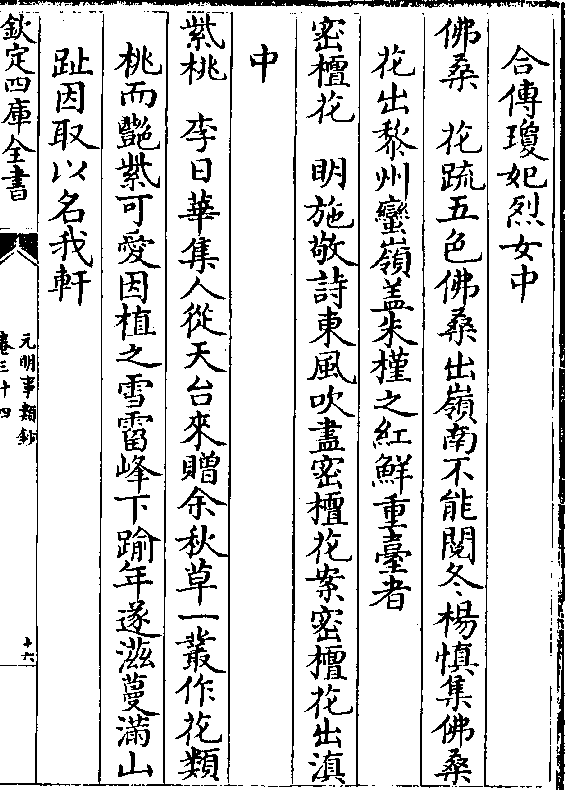 合傳瓊妃烈女中
佛桑　花疏五色佛桑出嶺南不能閱冬楊慎集佛桑
花出黎州蠻嶺盖朱槿之紅鮮重臺者
密檀花　明施敬詩東風吹盡密檀花案密檀花出滇
中
紫桃　李日華集人從天台來贈余秋草一叢作花類
桃而艷紫可愛因植之雪霤峰下踰年遂滋蔓滿山
趾因取以名我軒
欽定四庫全書
元明事類鈔
卷三十四
十六